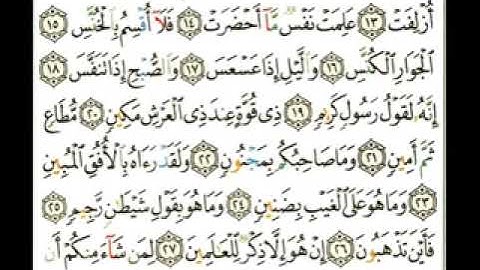 أُزْلِفَتْ ١٣ عَلِمَتْ نَفْسٌ مَّآ أَحْضَرَتْ ١٤ فَلَآ أُقْسِمُ بِٱلْخُنَّسِ ١٥
ٱلْجَوَارِ ٱلْكُنَّسِ ١٦ وَٱلَّيْلِ إِذَا عَسْعَسَ ١٧ وَٱلصُّبْحِ إِذَا تَنَفَّسَ ١٨
إِنَّهُۥ لَقَوْلُ رَسُولٍ كَرِيمٍ ١٩ ذِى قُوَّةٍ عِندَ ذِى ٱلْعَرْشِ مَكِينٍ ٢٠ مُّطَاعٍ
ثَمَّ أَمِينٍ ٢١ وَمَا صَاحِبُكُم بِمَجْنُونٍ ٢٢ وَلَقَدْ رَءَاهُ بِٱلْأُفُقِ ٱلْمُبِينِ
٢٣ وَمَا هُوَ عَلَى ٱلْغَيْبِ بِضَنِينٍ ٢٤ وَمَا هُوَ بِقَوْلِ شَيْطَٰنٍ رَّجِيمٍ ٢٥
فَأَيْنَ تَذْهَبُونَ ٢٦ إِنْ هُوَ إِلَّا ذِكْرٌ لِّلْعَٰلَمِينَ ٢٧ لِمَن شَآءَ مِنكُمْ أَن